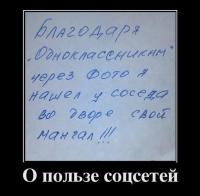 Благодаря
"Одноклассникам"
через фото я
нашел у соседа
во дворе свой
мангал!!!
О пользе соцсетей